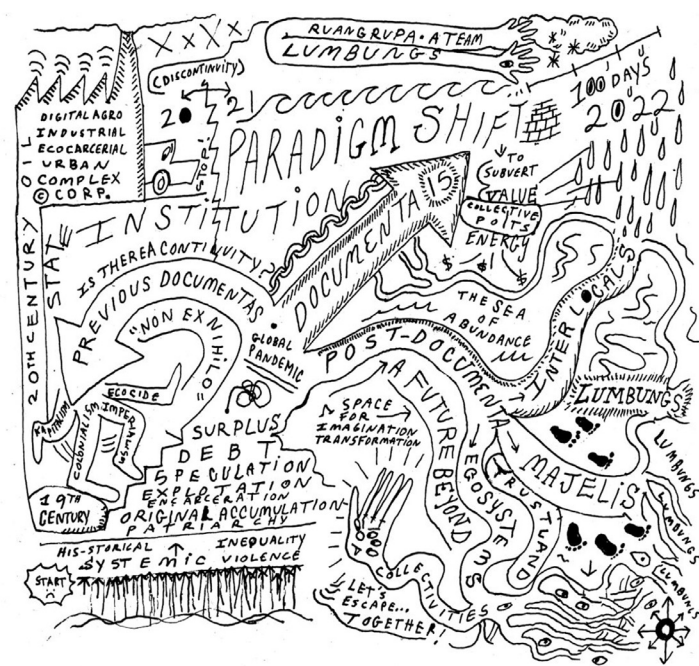 RUANGRUPA·A TEAM
LUMBUNGS
(DISCONTINUITY)
100 DAYS
2022
DIGITAL AGRO
INDUSTRIAL
ECOCARCERIAL
URBAN
COMPLEX
© CORP.
20
21
STOP!
PARADIGM SHIFT
TO
SUBVERT
VALUE
COLLECTIVE
POTS
ENERGY
20TH CENTURY OIL
STATE
INSTITUTION
DOCUMENTA 15
IS THERE A CONTINUITY?
PREVIOUS DOCUMENTAS
"NON EX NIHILO"
GLOBAL
PANDEMIC
$ $ ! $
THE SEA
OF
ABUNDANCE
INTER LOCALS
POST-DOCUMENTA
LUMBUNGS
ECOCIDE
KAPITALISM
COLONIALISM
IMPERIALISM
19TH
CENTURY
SURPLUS
DEBT
SPECULATION
EXPLOITATION
INCARCERATION
ORIGINAL ACCUMULATION
PATRIARCHY
A SPACE
FOR
IMAGINATION
TRANSFORMATION
A FUTURE
BEYOND
EGOSYSTEMS
TRUST LAND
MAJELIS
LUMBUNGS
LUMBUNGS
LUMBUNGS
HIS-STORICAL INEQUALITY
SYSTEMIC VIOLENCE
START
COLLECTIVITIES
LET'S
ESCAPE...
TOGETHER!